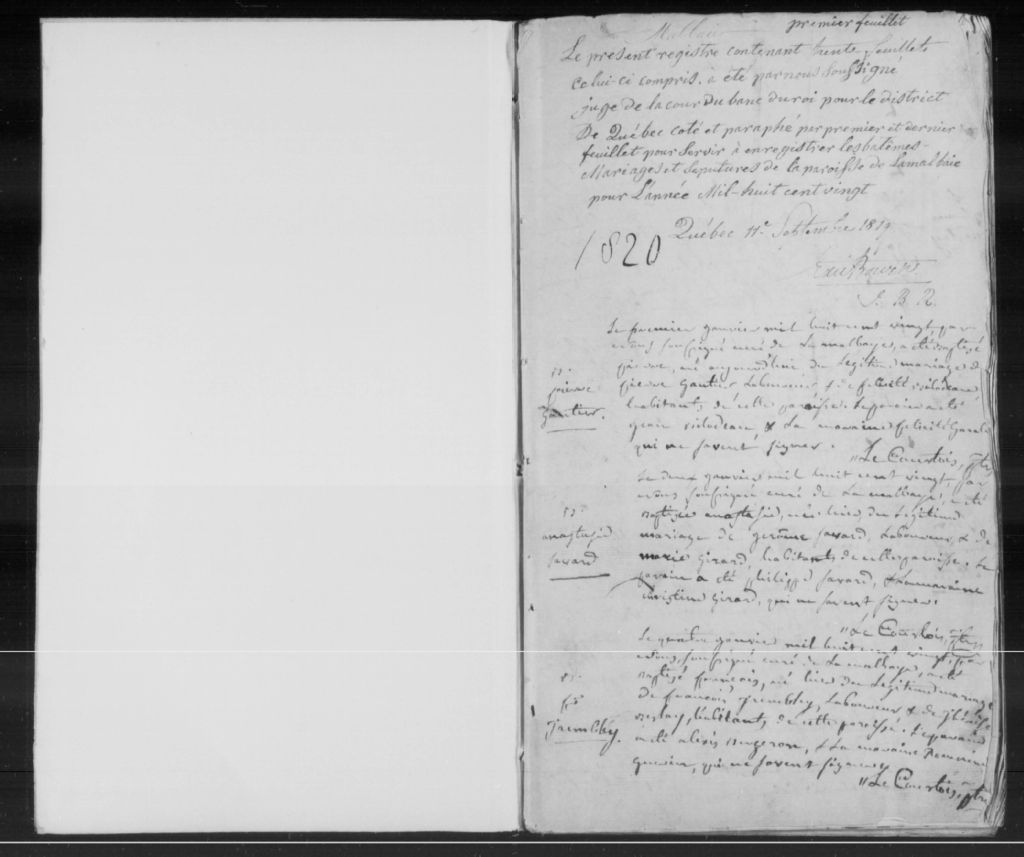 premier feuillet
Mallbaie
Le présent registre contenant trente feuillets
celui-ci compris, a été par nous soussigné
juge de la cour Du banc du roi pour le district
De Québec coté et paraphé par premier et dernier
feuillet pour servir à enregistrer les batêmes
Mariages et Sepultures de la paroisse de Lamalbaie
pour L'année Mil-huit cent vingt
Québec 11e Septembre 1819
1820
J. B. R.
Le premier janvier mil huit cent vingt, par
nous soussigné curé de La malbaye, a été baptisé
pierre, né aujourd'hui du Legitime mariage de
pierre Gautier Laboureur & de felicité
habitants de cette paroisse. Le parein a été
jean & La maraine felicité
qui ne savent signer.
pierre
Gautier.
"Le Courtois, ptre
Le deux janvier mil huit cent vingt, par
nous soussigné curé de La malbaye, a été
baptisée anastasie, née hier, du Legitime
mariage de jerôme Savard, Laboureur, & de
marie Girard, habitants de cette paroisse. Le
parain a été philippe Savard, & La maraine
christine Girard, qui ne savent signer.
anastasie
Savard
"Le Courtois, ptre
Le quatre janvier mil huit cent vingt, par
nous, soussigné curé de La malbaye, a été
baptisé francois, né hier du Legitime mariage
de francois Trembley, Laboureur & de
habitants de cette paroisse. Le parain
a été alexis & La maraine
qui ne savent signer
Trembley.
"Le Courtois, ptre